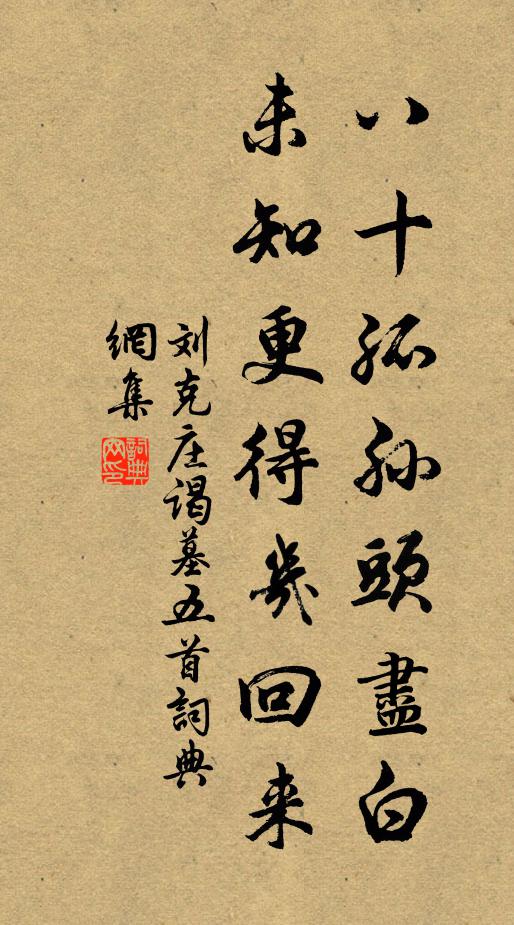 八十孤孙頭盡白
未知更得幾回来
刘克庄谒墓五首詞典
網集
詞典网印